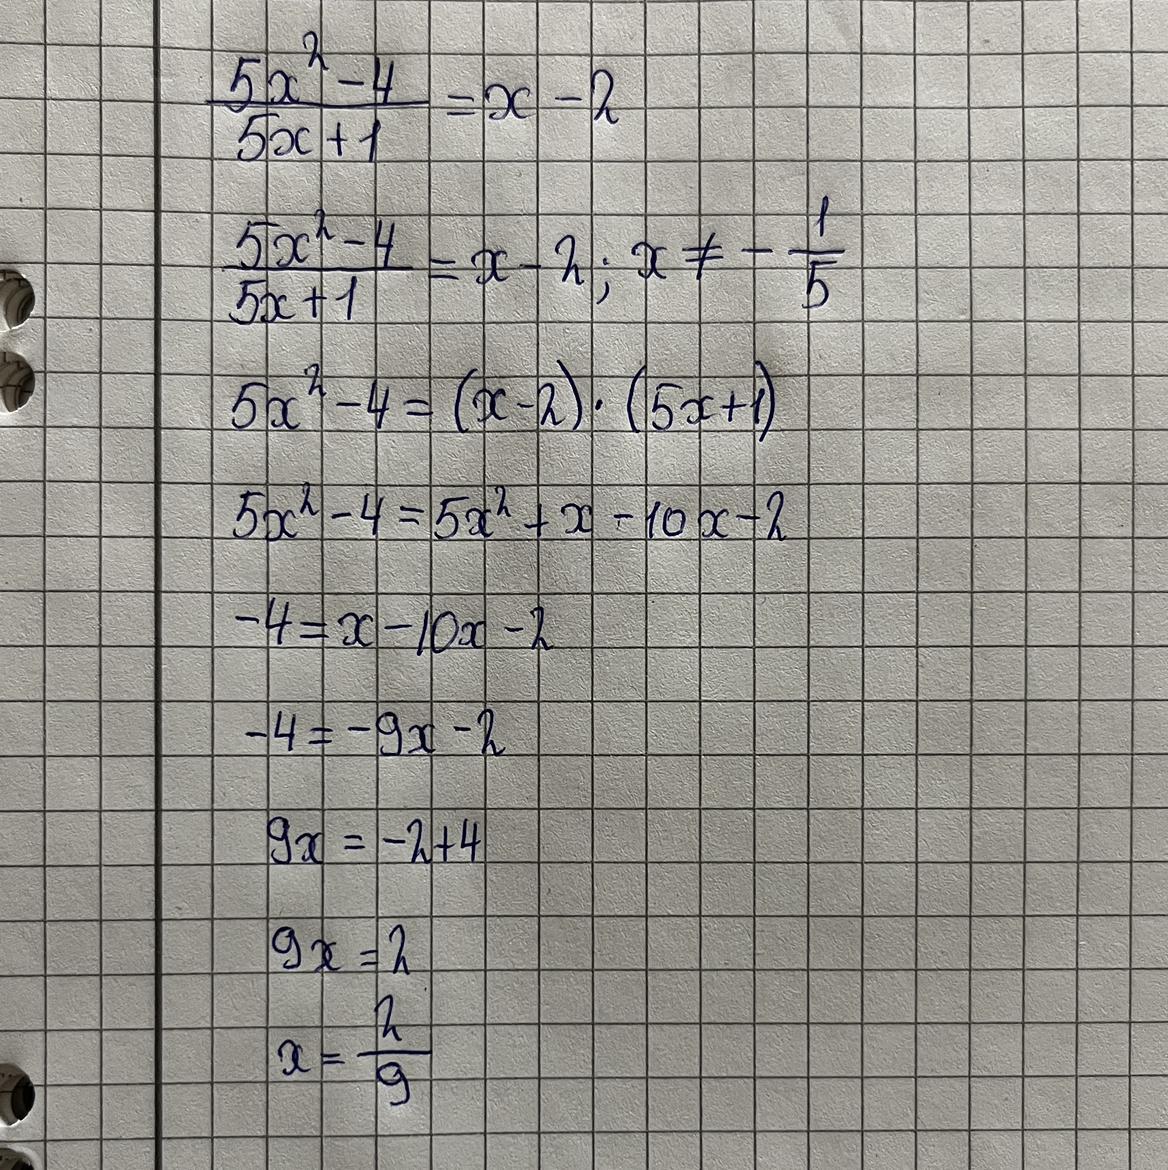 \frac{5x^2-4}{5x+1} = x-2
\frac{5x^2-4}{5x+1} = x-2; x ≠ -\frac{1}{5}
5x^2-4 = (x-2)·(5x+1)
5x^2-4 = 5x^2+x-10x-2
-4 = x-10x-2
-4 = -9x-2
9x = -2+4
9x = 2
x = \frac{2}{9}